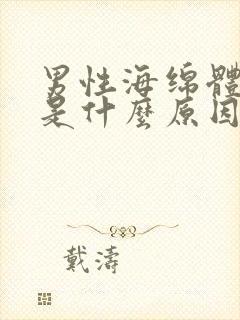 男性海绵體
是什麼原因
戴濤